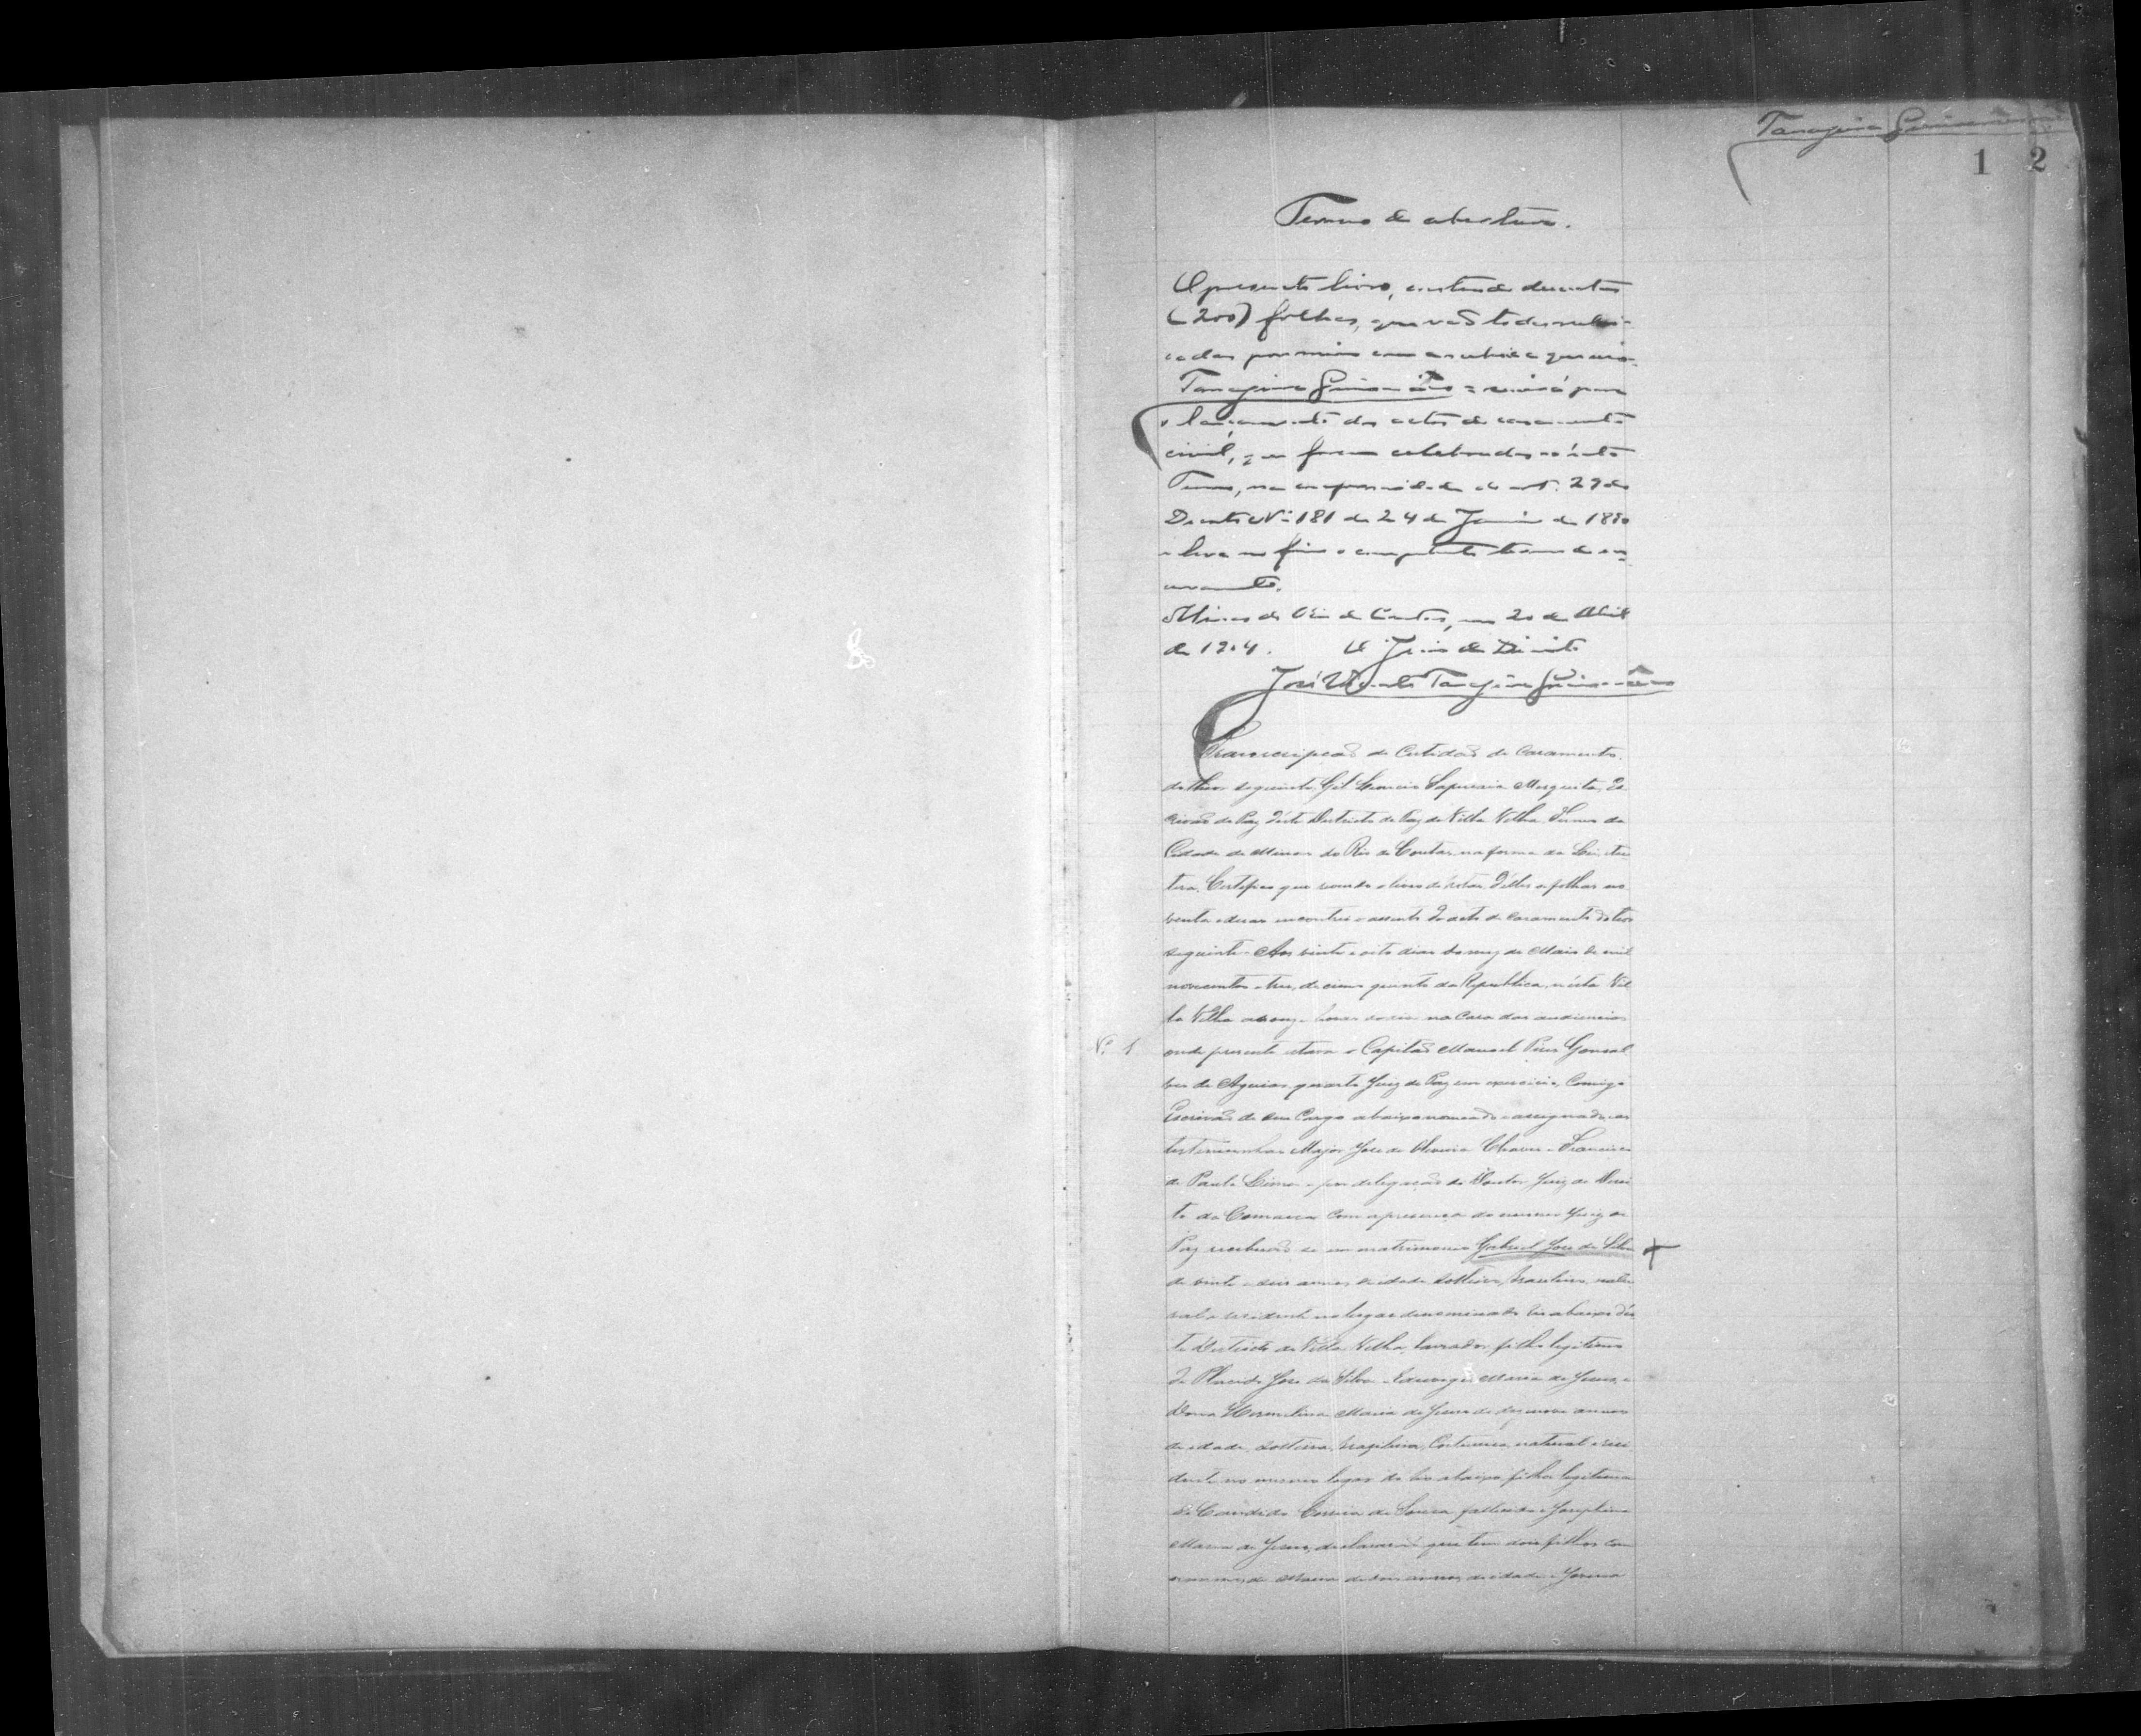 Tanajura Guimarães
1 2
Termo de abertura.
O presente livro, contendo duzentas
(200) folhas, que vaõ todas rubri-
cadas por mim com a rubrica que uso
Tanajura Guimarães = servirá para
o lançamento dos actos de casamento
civil, que forem celebrados n'este
Termo, na conformidade do art. 29 do
Decreto Nº 181 de 24 de Janeiro de 1890
e leva no fim o competente termo de en-
cerramento.
Minas do Rio de Contas, em 20 de Abril
de 1904. O Juiz de Direito
José Vicente Tanajura Guimarães
Transcripçaõ de Certidaõ de Casamento
do theor seguinte. Gil Sapucaia Mesquita, Es
crivaõ de Paz d'este Districto de Paz de Villa Velha, Termo da
Cidade de Minas do Rio de Contas, na forma da Lei, etc
Certifico que vendo o livro de notas d'elle a folhas no
venta e duas encontrei o assento do acto de casamento do teor
seguinte. Aos vinte e oito dias do mez de Maio de mil
novecentos e tres, decimo quinto da Republica, n'esta Vil
la Velha as onze horas do dia na Casa das audiencias
Nº 1 onde presente estava o Capitaõ Manoel Pires Gonsal
ves de Aguiar, quarto Juiz de Paz em exercicio, Comigo
Escrivaõ de seu Cargo abaixo nomeado e assignado e as
testemunhas Major José de Oliveira Chaves e Francisco
de Paula Lima e por delegaçaõ do Doutor Juiz de Direi
to da Comarca com a presença do mesmo Juiz de
Paz receberaõ se em matrimonio Gabriel José da Silva +
de vinte e seis annos de idade solteiro, brasileiro, natu
ral e residente no lugar denominado Rio abaixo d'es
te Districto de Villa Velha, lavrador, filho legitimo
de Placido José da Silva e Eduvirges Maria de Jesus, e
Dona Maria de Jesus de dezenove annos
de idade, solteira, brazileira, Costureira, natural e resi
dente no mesmo lugar do Rio abaixo, filha legitima
de Candido Correia de Souza, fallecido e Josephina
Maria de Jesus, declararaõ que tem dois filhos com
os nomes de Maria de dois annos de idade e